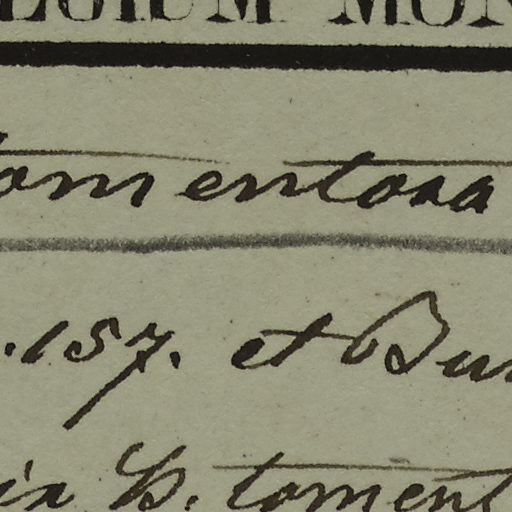 EGIUM MON
tomentosa
.157. et Bur
ia b. toment